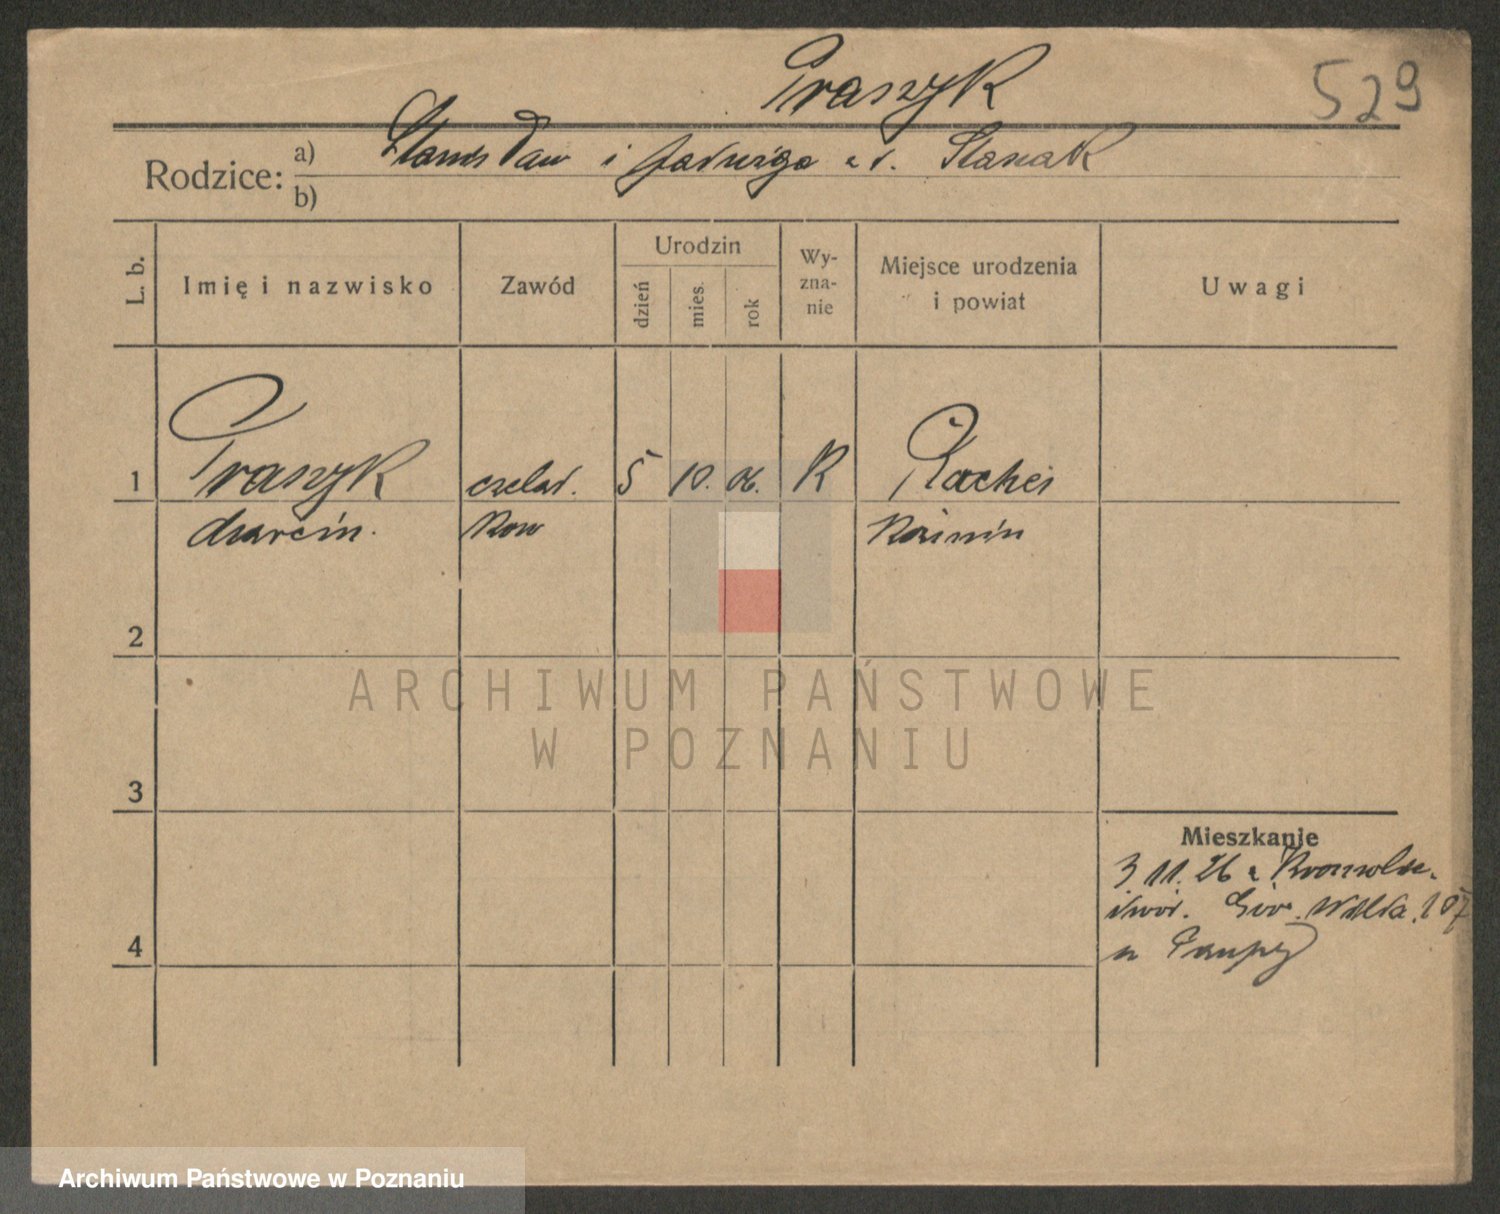 Praszyk
529
Rodzice: a) Stanisław i Jadwiga z d. Stasiak
b)
L. b.
Imię i nazwisko
Zawód
Urodzin
dzień
mies.
rok
Wy-
zna-
nie
Miejsce urodzenia
i powiat
Uwagi
1
Praszyk
czelad.
5
10.
06.
R
Marcin.
kow
Koźmin
2
3
Mieszkanie
3.11.26 z
Gór. Wilda 107
u
4
ARCHIWUM PAŃSTWOWE
W POZNANIU
Archiwum Państwowe w Poznaniu